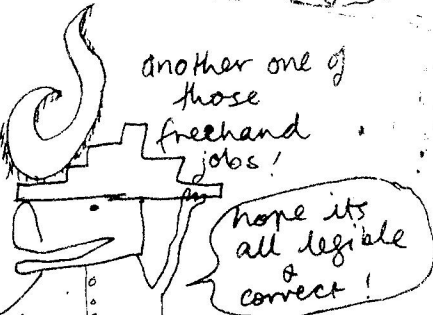 another one of
those
freehand
jobs!
hope its
all legible
&
correct!